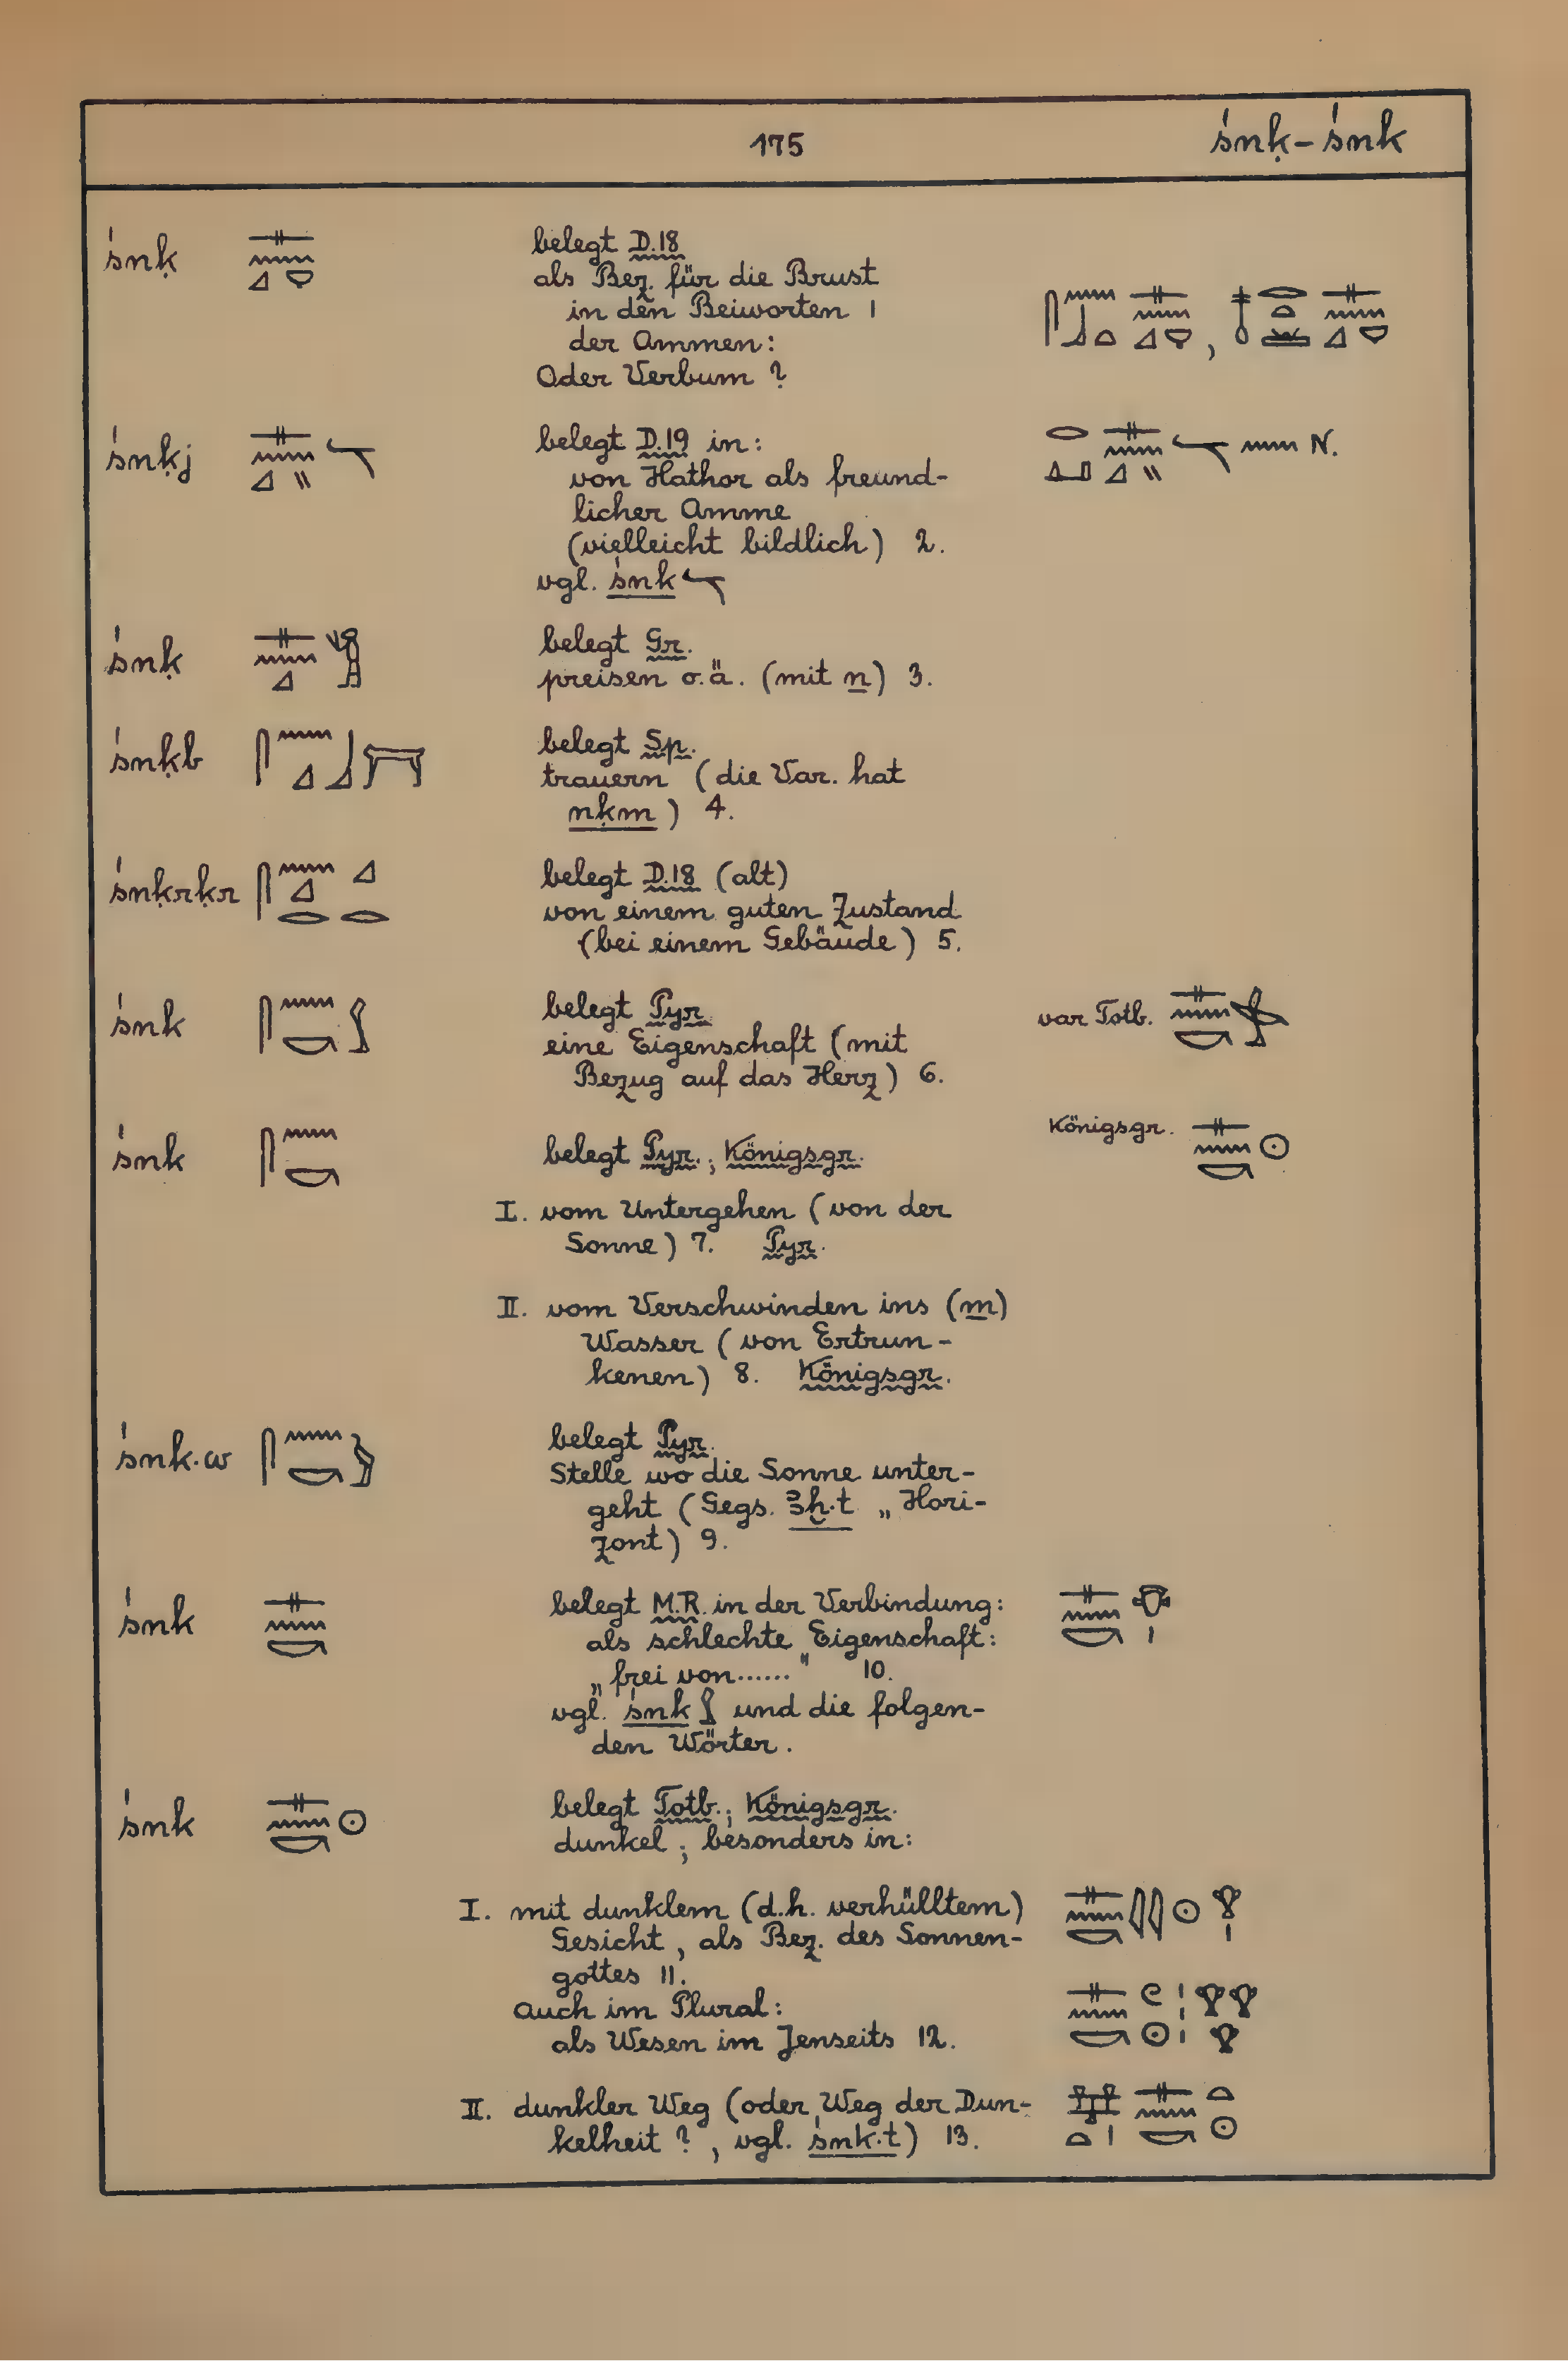 175 śnḳ – śnk
śnḳ 𓋴𓈖𓈎𓄑 belegt D.18
als Bez. für die Brust
in den Beiworten 1
der Ammen:
Oder Verbum ?
śnḳj belegt D.19 in: N.
von Hathor als freund-
licher Amme
(vielleicht bildlich) 2.
vgl. śnk
śnḳ belegt Gr.
preisen o.ä. (mit n) 3.
śnḳb belegt Sp.
trauern (die Var. hat
nḳm) 4.
śnḳrḳr belegt D.18 (alt)
von einem guten Zustand
(bei einem Gebäude) 5.
śnk belegt Pyr. var Totb.
eine Eigenschaft (mit
Bezug auf das Herz) 6.
śnk belegt Pyr.; Königsgr. Königsgr.
I. vom Untergehen (von der
Sonne) 7. Pyr.
II. vom Verschwinden ins (m)
Wasser (von Ertrun-
kenen) 8. Königsgr.
śnk.w belegt Pyr.
Stelle wo die Sonne unter-
geht (Gegs. ꜣḫ.t „Hori-
zont) 9.
śnk belegt M.R. in der Verbindung:
als schlechte Eigenschaft:
„frei von......" 10.
vgl. śnk und die folgen-
den Wörter.
śnk belegt Totb.; Königsgr.
dunkel; besonders in:
I. mit dunklem (d.h. verhülltem)
Gesicht, als Bez. des Sonnen-
gottes 11.
auch im Plural:
als Wesen im Jenseits 12.
II. dunkler Weg (oder Weg der Dun-
kelheit ?, vgl. śnk.t) 13.